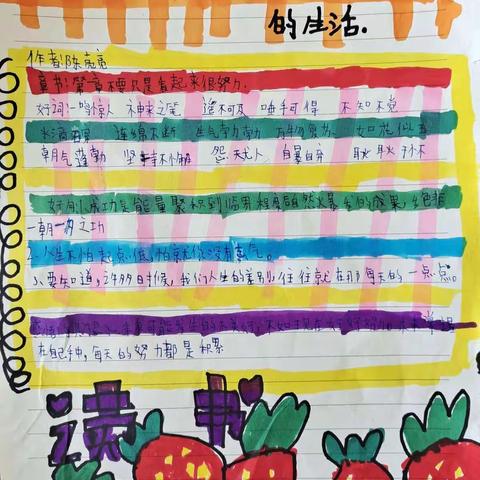 的生活.
作者:陈亮亮
章节:第一章不要只是看起来很努力.
好词:一鸣惊人 神来之笔 遥不可及 唾手可得 不知不觉
水滴石穿 连绵不断 生气勃勃 万物复苏、如花似
朝气蓬勃 坚持不懈 怨天尤人 自暴自弃
好句:1.成功是能量聚积到临界程度自然爆发的成果,绝非
一朝一夕之功
2.人生不怕起点低,怕就你没有勇气。
3、要知道,许多时候,我们人生的差别,往往就在那每天的一点点。
在自己手中,每天的努力都是积累
读书